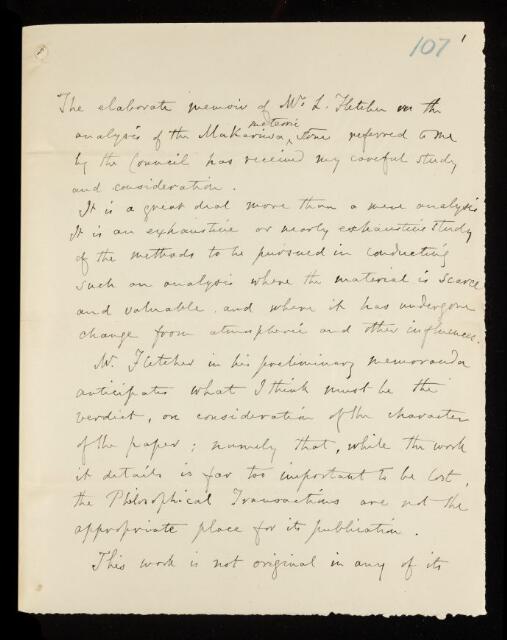 107
1
The elaborate memoir of Mr. L. Fletcher on the
meteoric
analysis of the Makariwa ‸ stone referred to me
by the Council has received my careful study
and consideration.
It is a great deal more than a mere analysis
It is an exhaustive or nearly exhaustive study
of the methods to be pursued in conducting
such an analysis where the material is scarce
and valuable and where it has undergone
change from atmospheric and other influences.
Mr. Fletcher in his preliminary memoranda
anticipates what I think must be the
verdict, on consideration of the character
of the paper; namely that, while the work
it details is far too important to be lost,
the Philosophical Transactions are not the
appropriate place for its publication.
This work is not original in any of its